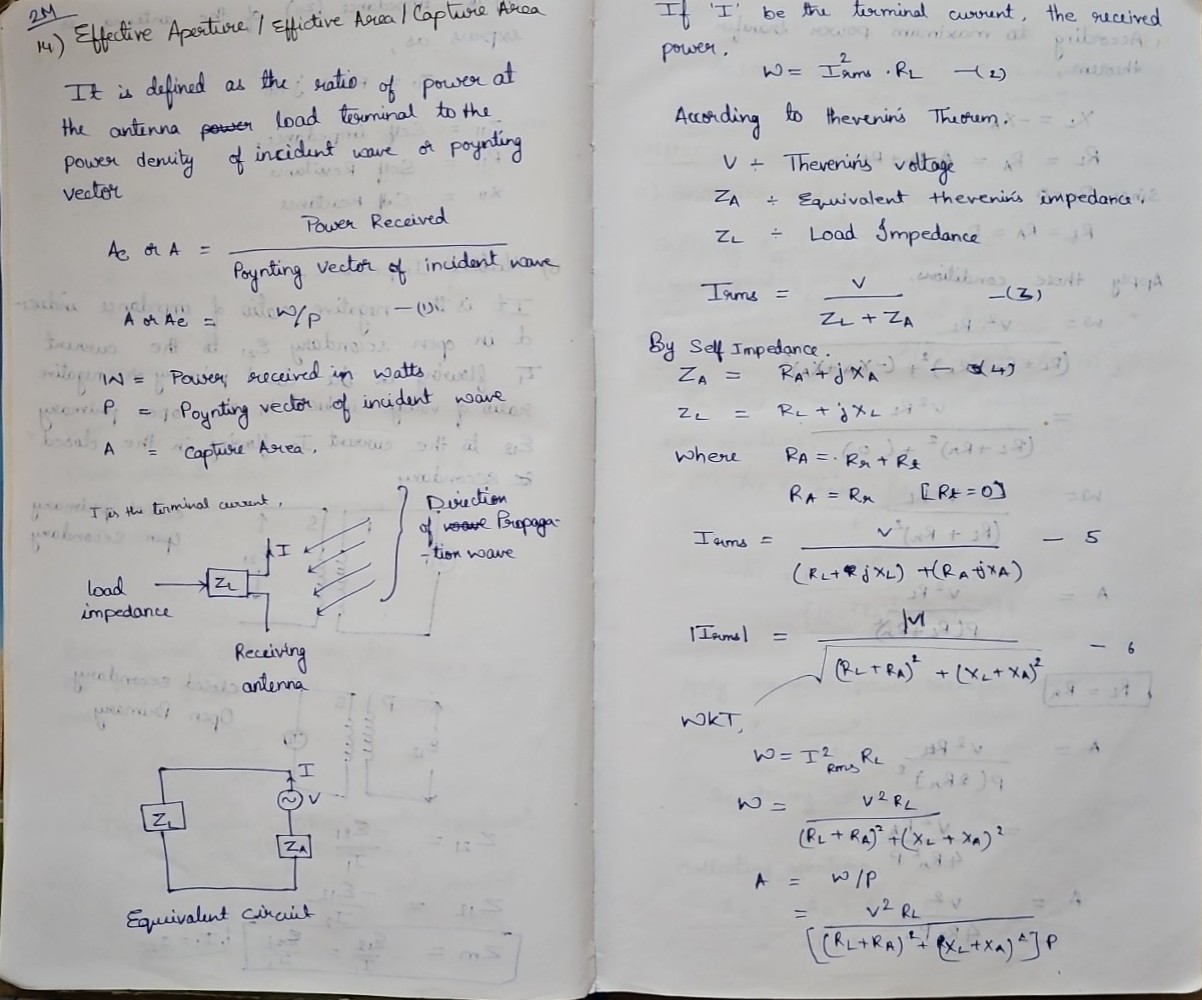 2M
14) Effective Aperture / Effictive Area / Capture Area
It is defined as the ratio of power at
the antenna power load terminal to the
power density of incident wave or poynting
vector
Ae or A = Power Received / Poynting vector of incident wave
A or Ae = W/P —(1)
W = Power received in watts
P = Poynting vector of incident wave
A = Capture Area.
I is the terminal current,
I
Direction
of wave Propaga-
-tion wave
load
impedance
ZL
Receiving
antenna
I
V
ZL
ZA
Equivalent Circuit
If 'I' be the terminal current, the received
power.
W = I²rms . RL —(2)
According to thevenin's Theorem.
V ÷ Thevenin's voltage
ZA ÷ Equivalent thevenin's impedance.
ZL ÷ Load Impedance
Irms = V / ZL + ZA —(3)
By Self Impedance.
ZA = RA + jXA —(4)
ZL = RL + jXL
where RA = Rr + Rl
RA = Rr [Rl = 0]
Irms = V / (RL + jXL) + (RA + jXA) — 5
|Irms| = |V| / √(RL + RA)² + (XL + XA)² — 6
WKT,
W = I²Rms RL
W = V² RL / (RL + RA)² + (XL + XA)²
A = W/P
= V² RL / [(RL + RA)² + (XL + XA)²] P